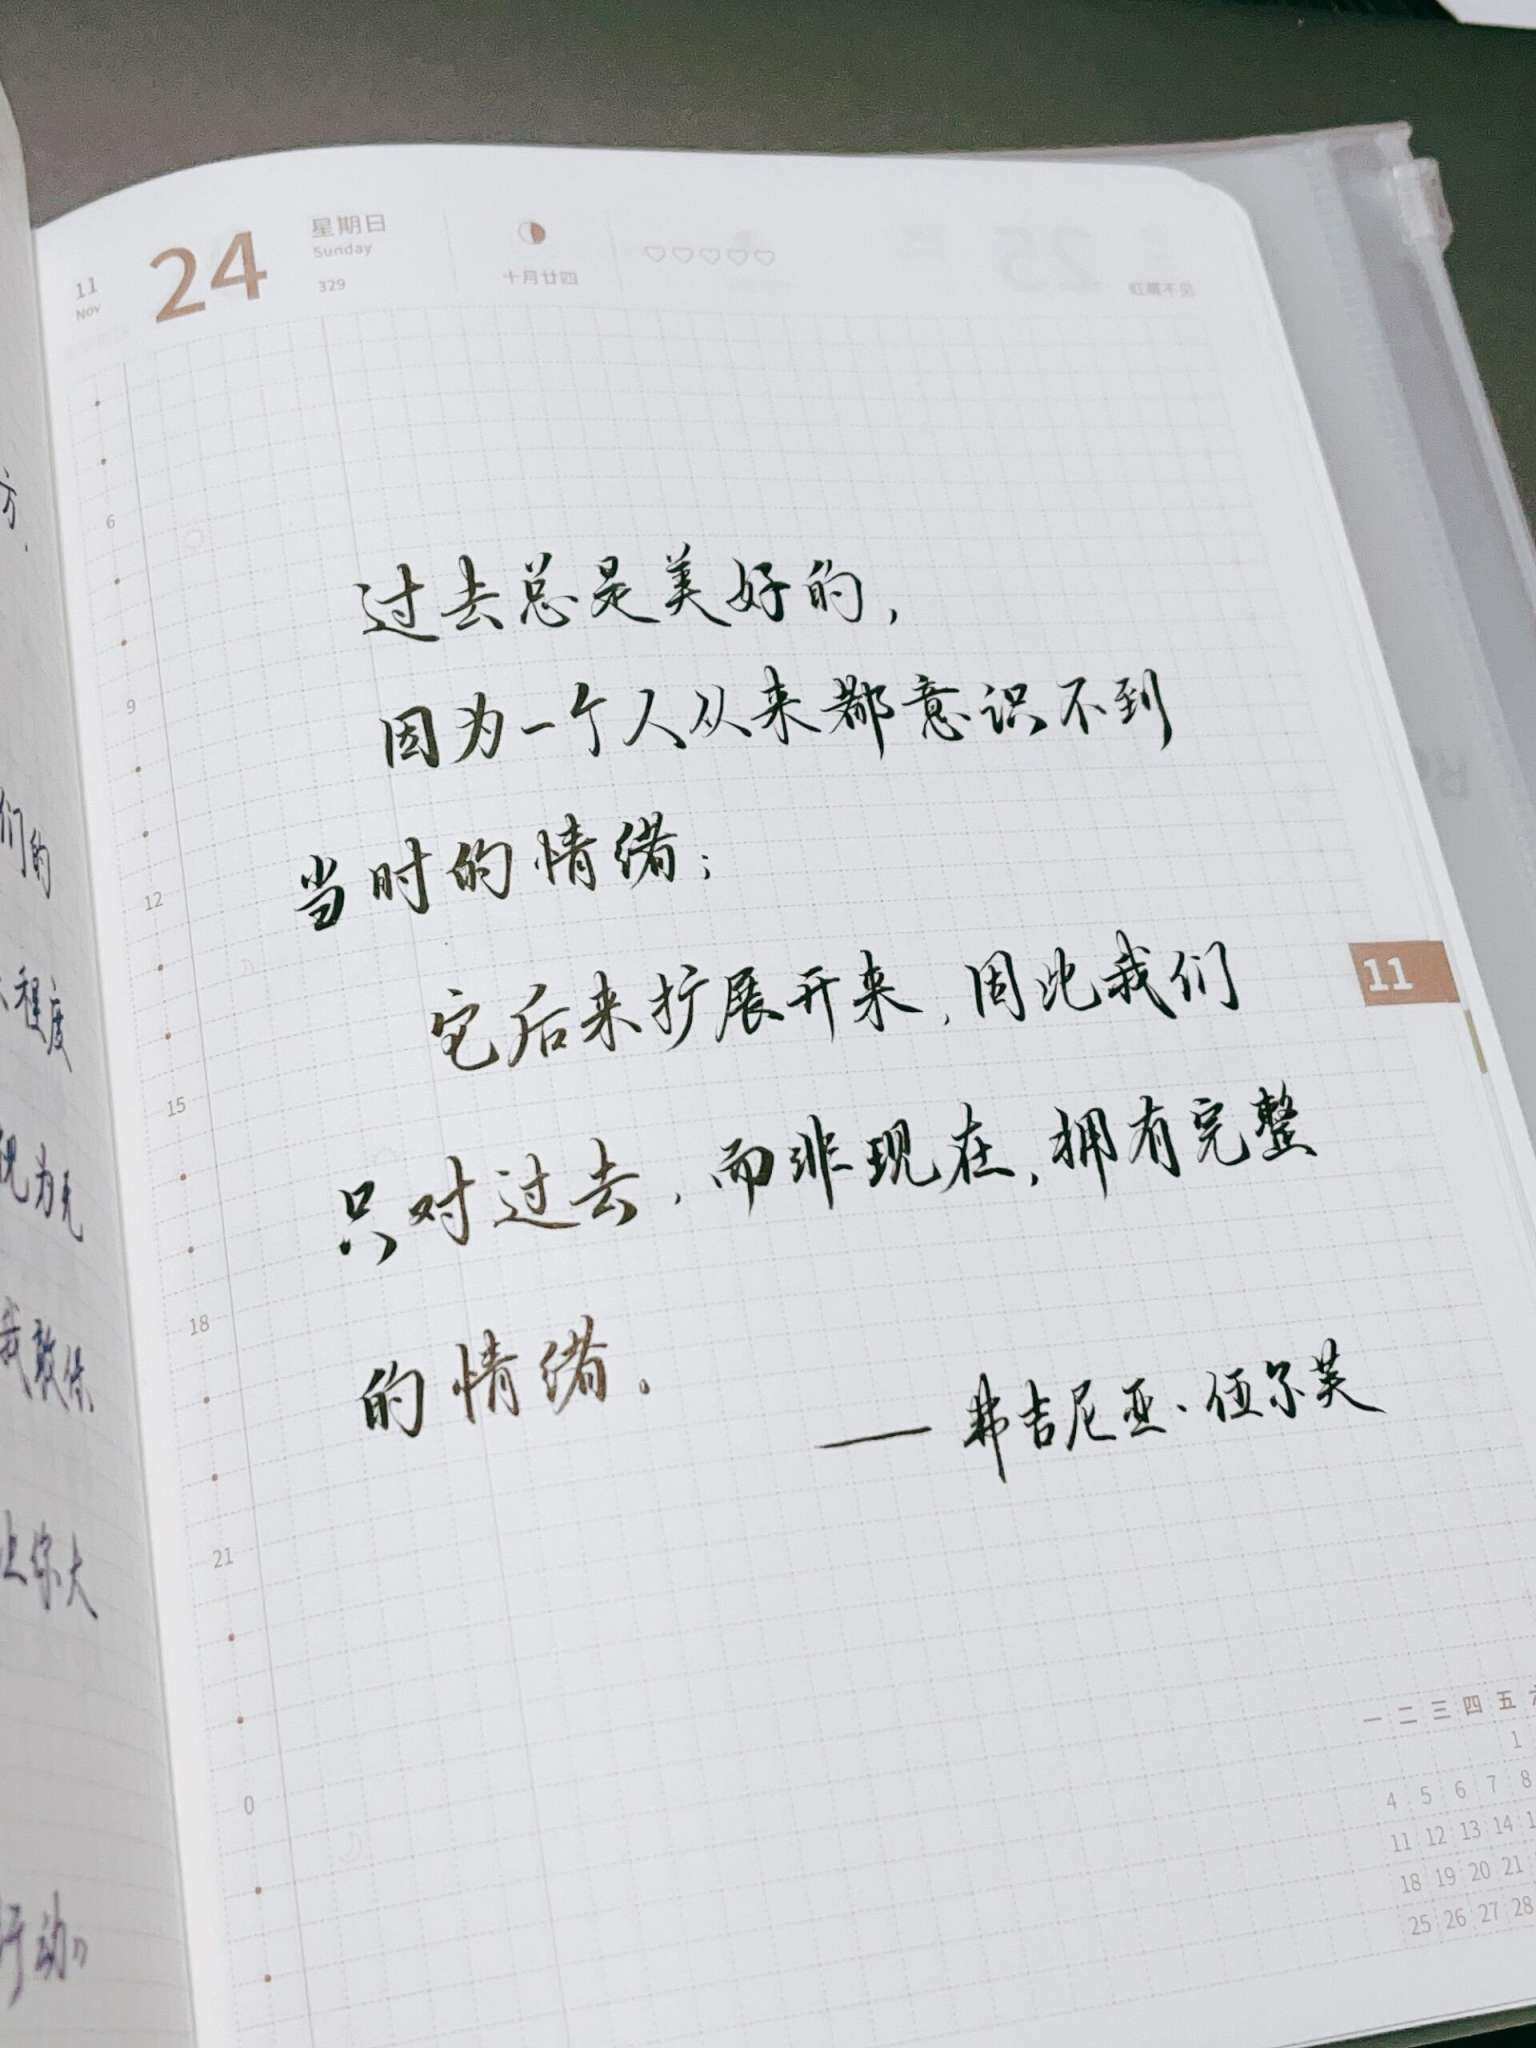 11
Nov
24
星期日
Sunday
329
十月廿四
虹藏不见
6
9
12
15
18
21
0
过去总是美好的,
因为一个人从来都意识不到
当时的情绪;
它后来扩展开来,因此我们
只对过去,而非现在,拥有完整
的情绪.
—— 弗吉尼亚·伍尔芙
11
一 二 三 四 五
1
4 5 6 7 8
11 12 13 14
18 19 20 21
25 26 27 28
方.
们的
程度
视为无
我敢保
让你大
行动》